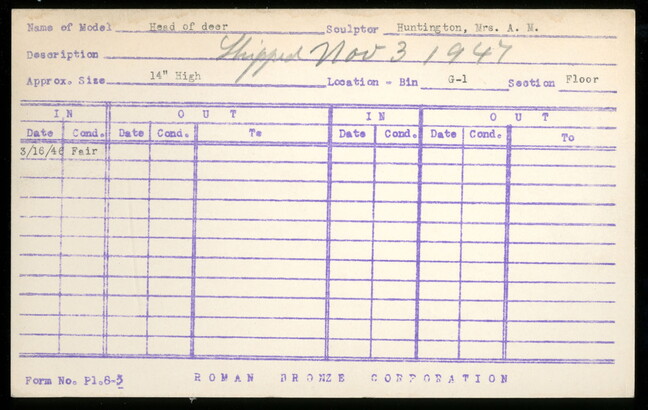 Name of Model Head of deer Sculptor Huntington, Mrs. A. M.
Description Shipped Nov 3 1947
Approx. Size 14" High Location - Bin G-1 Section Floor
IN OUT IN OUT
Date Cond. Date Cond. To Date Cond. Date Cond. To
3/16/46 Fair
Form No. Pl.6-3 ROMAN BRONZE CORPORATION